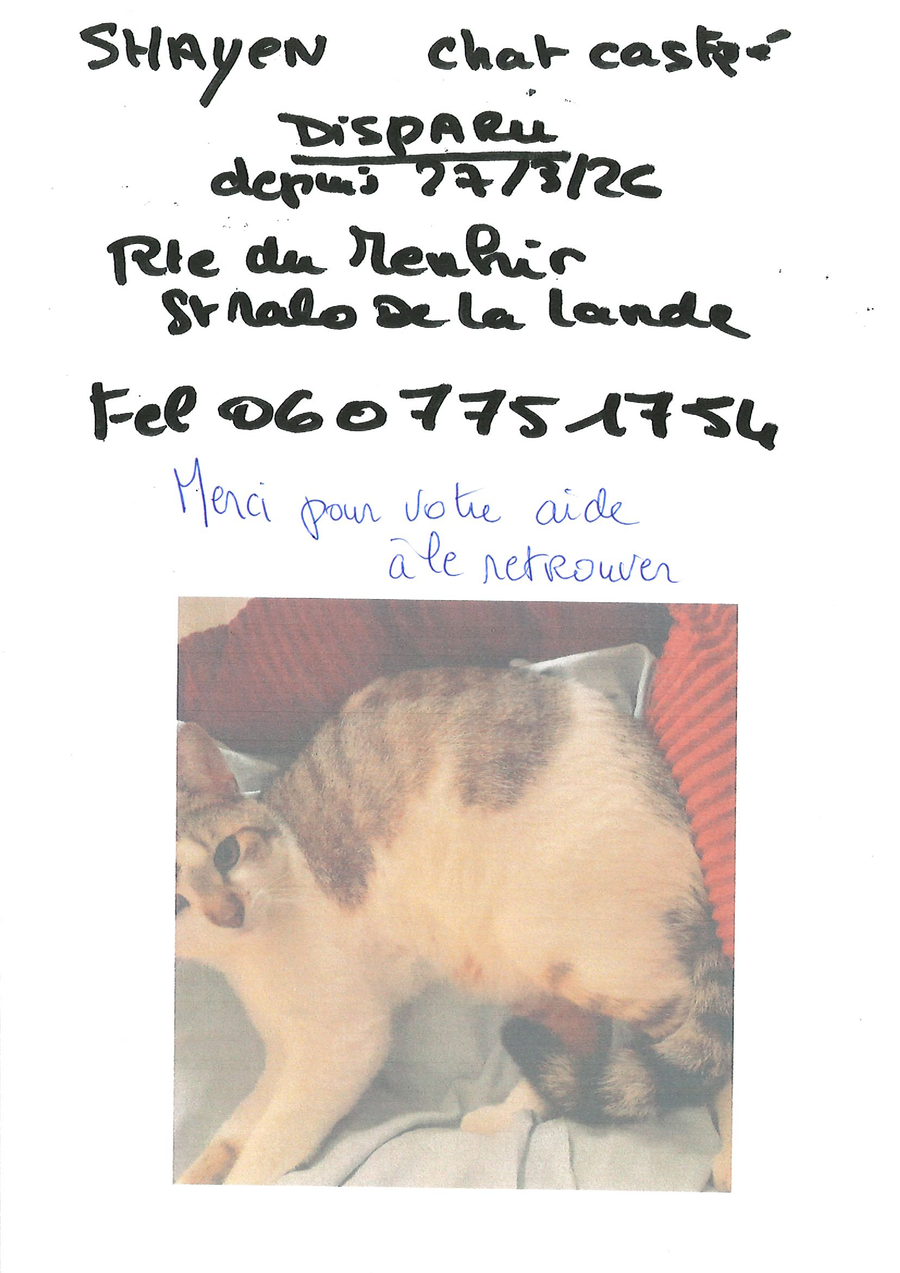 SHAYEN chat castré
DiSPARU
depuis 27/3/26
Rte du Menhir
St Malo De La Lande
Tel 0607751754
Merci pour votre aide
à le retrouver